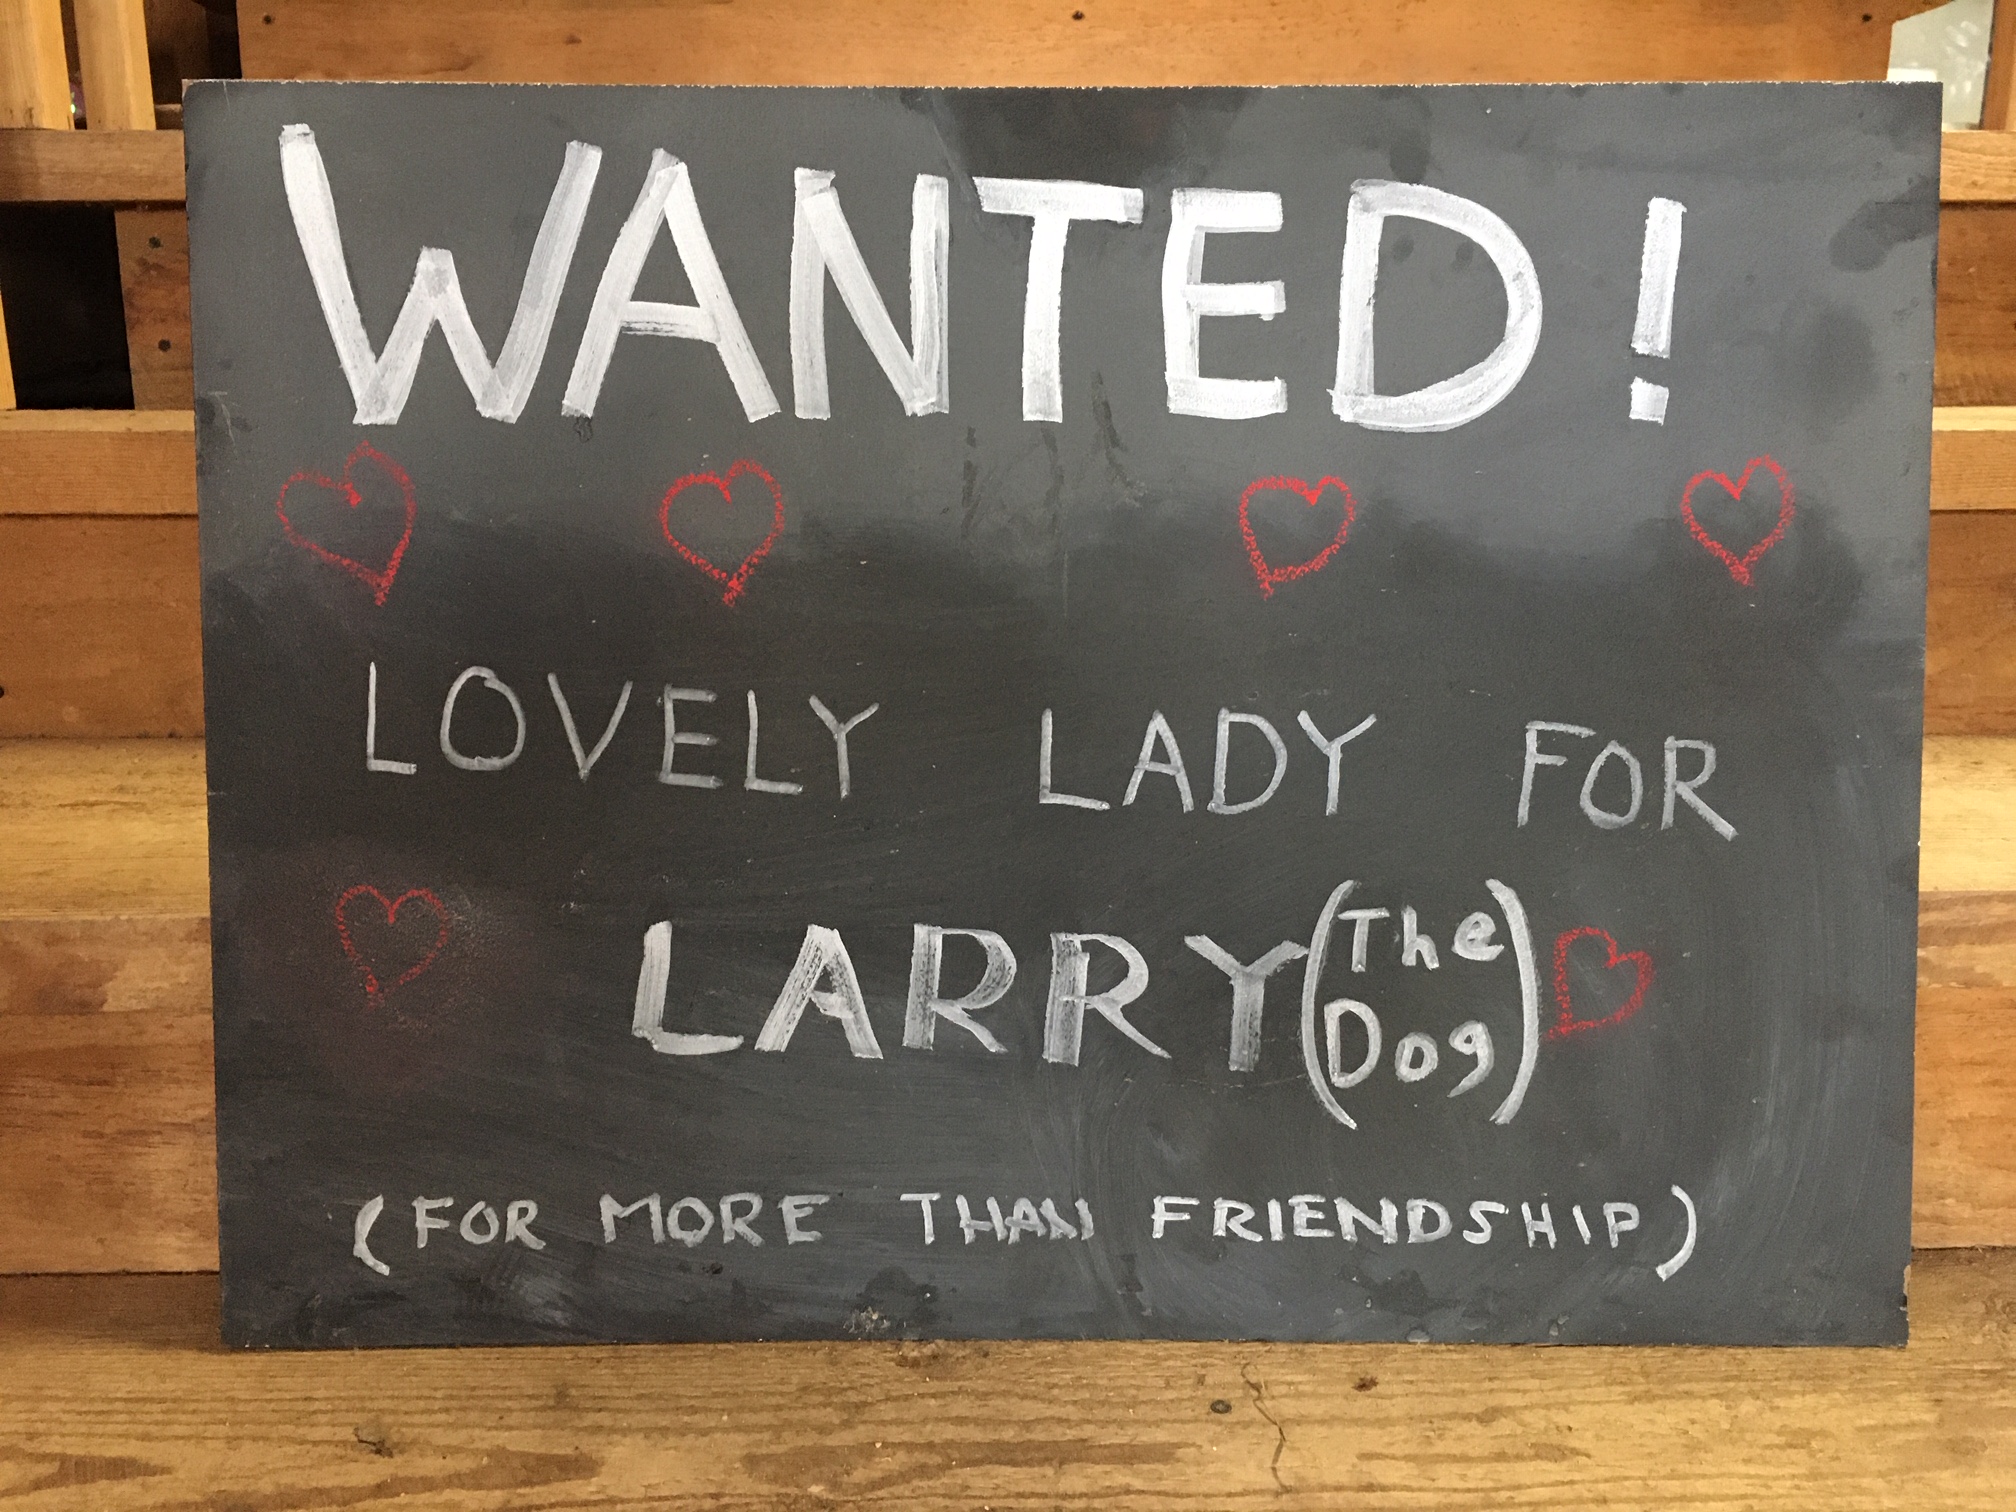 WANTED!
LOVELY LADY FOR
LARRY (The
Dog)
(FOR MORE THAN FRIENDSHIP)